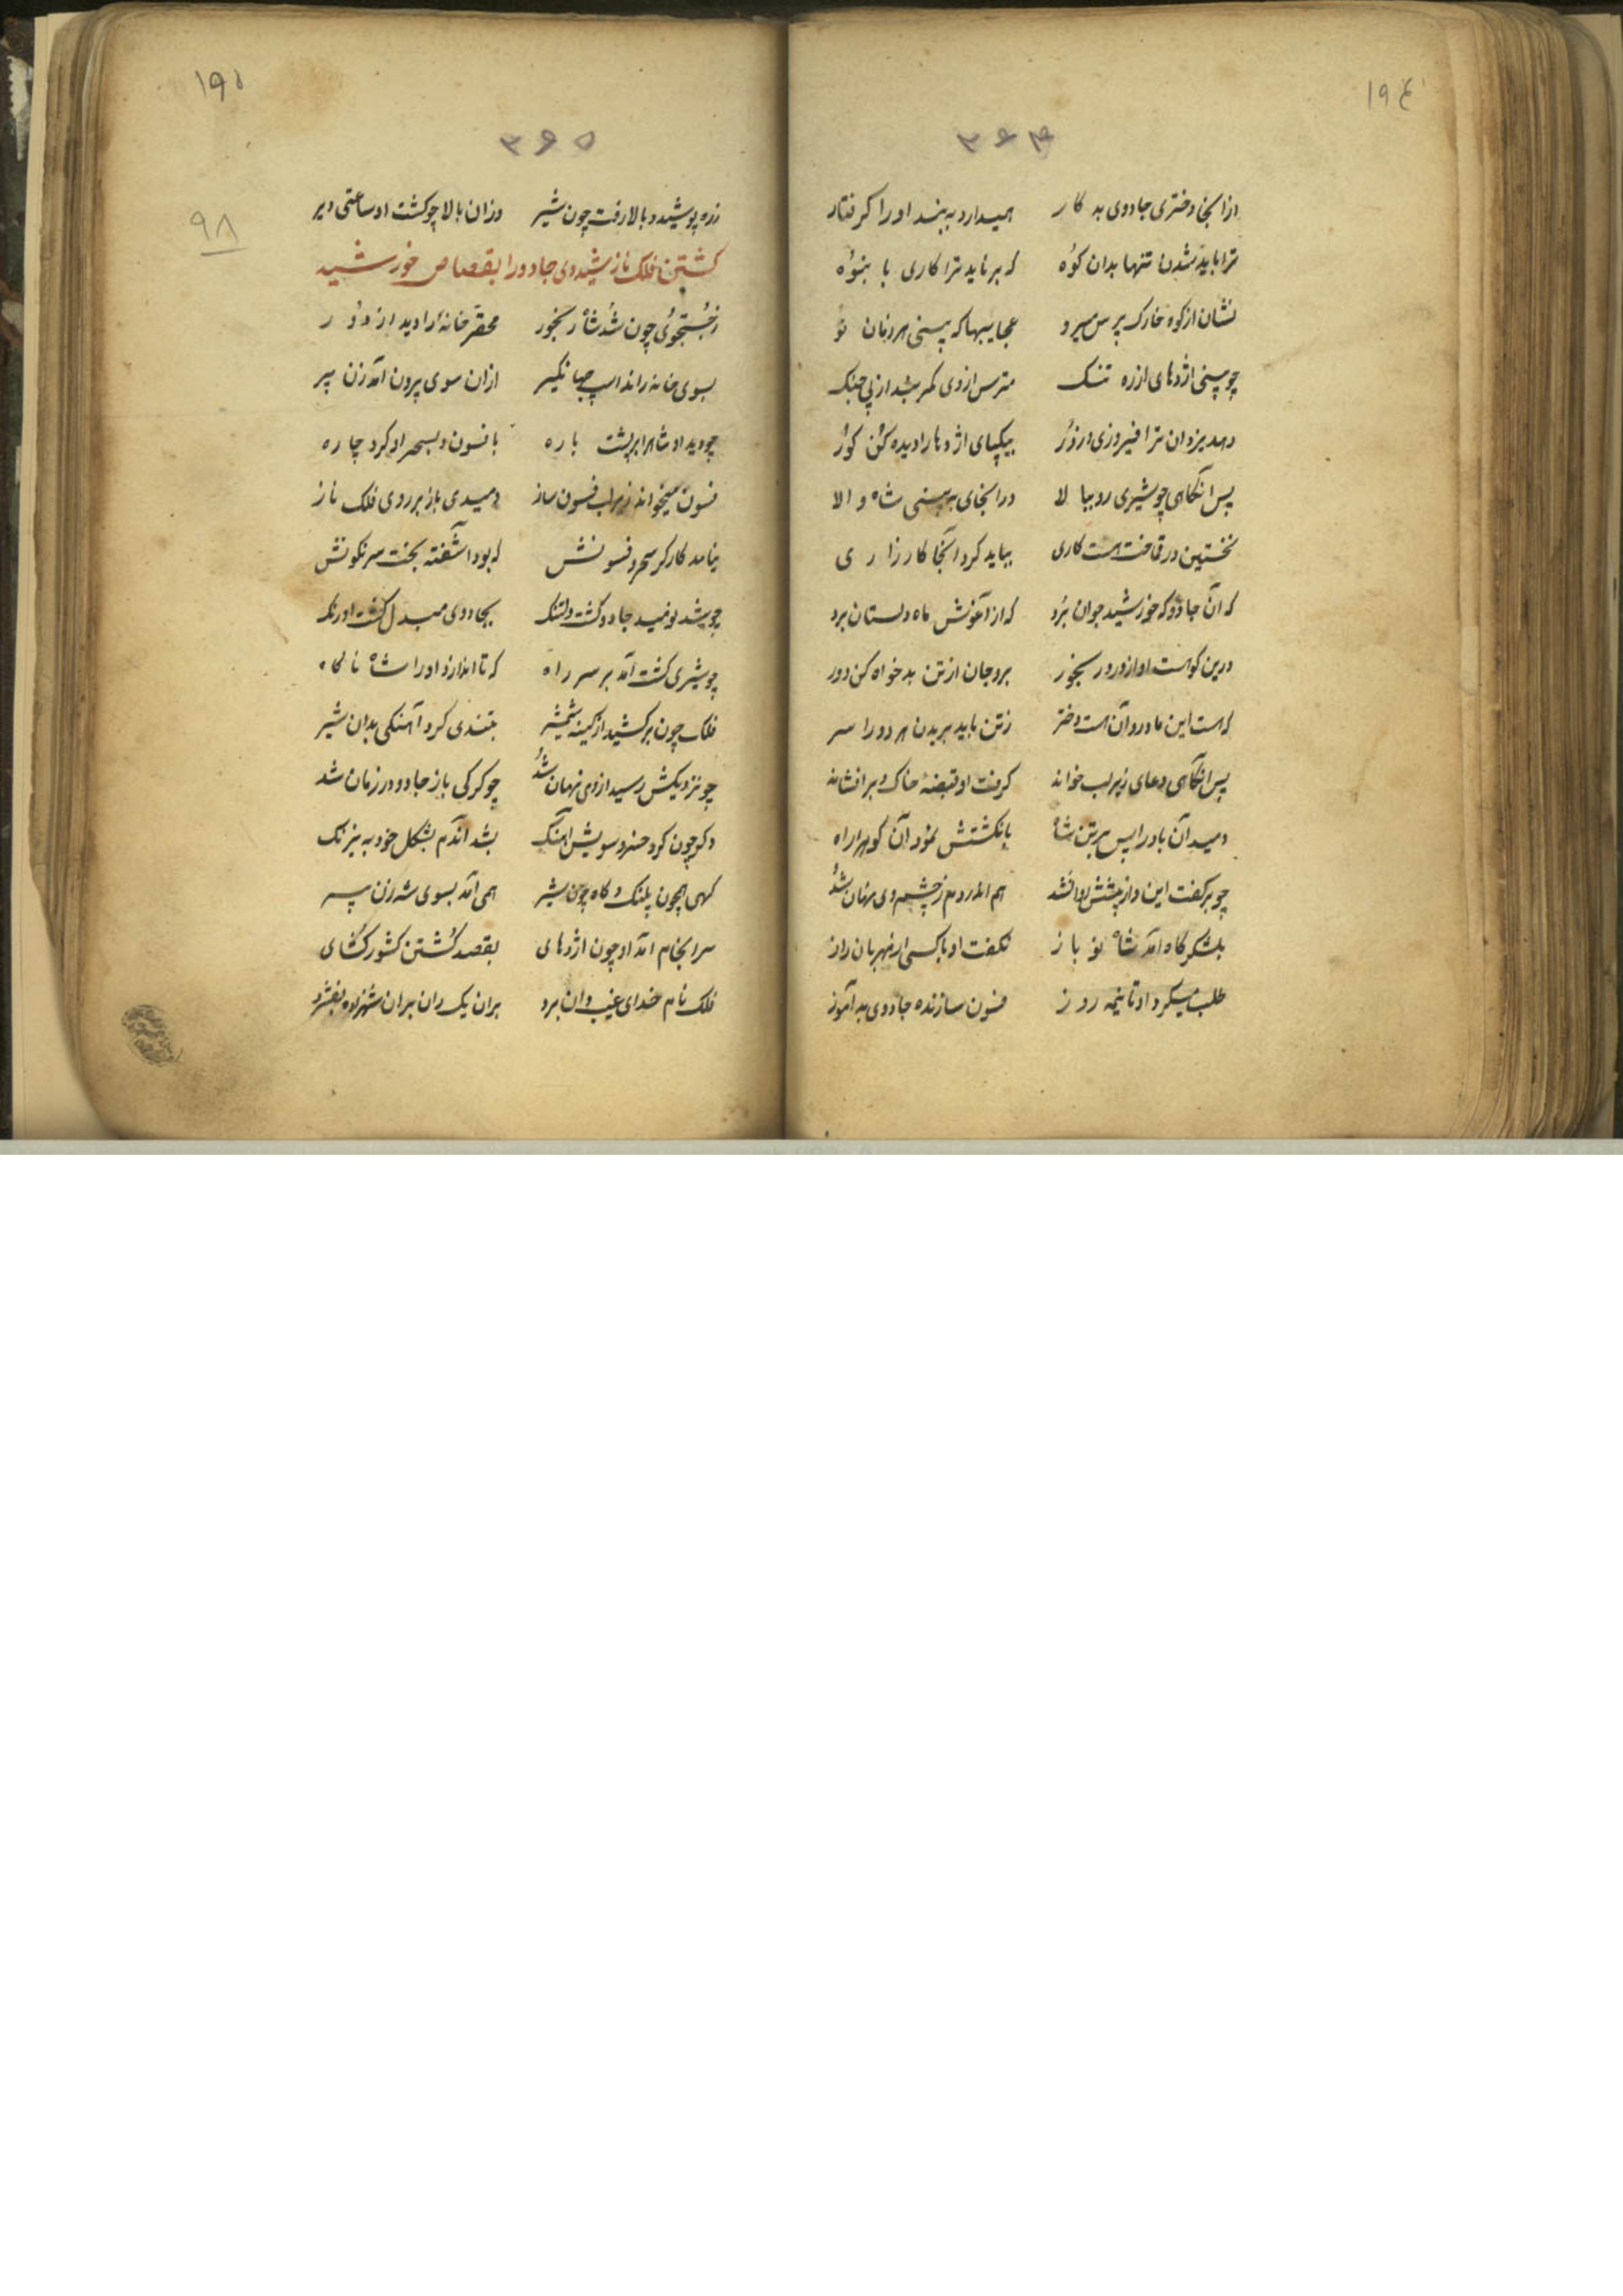 ۱۹۴
۳۶۴
از آنجا دختری جادوی بد کار همیدارد به بند او را کرفتار
ترا باید شدن تنها بدان کوه که بر ناید ترا کاری با بنوه
نشان از کوه خارک پرس میرو عجایبها که بینی هر زمان نو
چو بینی اژدهای از ره تنک مترس از وی کمر بند از پی جنک
دهد یزدان ترا فیروزی و زور بپیکپای اژدها را دیده کن کور
پس انگاهی چو شیری رو ببالا در انجای به بینی شاه والا
نخستین در قاخت هست کاری بباید کرد آنجا کارزاری
که آن جادو که خورشید جوان برد که از آغوش ماه دلستان برد
درین کوهست او از ورور رنجور برو جان از تن بدخواه کن دور
که هست این مادر و آن هست دختر ز تن باید بریدن هر دو را سر
پس انگاهی دعای زیر لب خواند کرفت او قبضهٔ خاک و بر افشاند
دمید آن باد را پس بر تن شاه بانکشتش نمود آن کوهرا راه
چو بر کفت این و از پیشش روا شد هم اندر دم ز چشم وی نهان شد
بلشکر کاه آمد شاه نو باز نکفت او با کسی از مهربان راز
طلب میکرد او تا نیمه روز فسون سازنده جادوی بد آموز
۱۹۵
۳۶۵
۹۸
زره پوشید و بالا رفت چون شیر در ان بالا چو کشت او ساعتی دیر
کشتن فلک ناز شیدوی جادو را بقصاص خورشید
ز جستجوی چون شد شاه رنجور محقر خانه را دید از دور
بسوی خانه راند اسپ جهانکیر از ان سوی برون آمد زن پیر
چو دید او شاهرا بر پشت باره بافسون و بسحر او کرد چاره
فسون میخواند زیر لب فسون ساز دمیدی باز بر روی فلک ناز
نیامد کارکر سحر و فسونش که بود آشفته بخت سرنکونش
چو شد نومید جادو کشت دلتنک بجادوی مبدل کشت او رنک
چو شیری کشت آمد بر سر راه که تا اندازد او را شاه ناکاه
فلک چون بر کشید از کینه شمشیر بتندی کرد آهنکی بدان شیر
چو نزدیکش رسید از وی نهان شد چو کرکی باز جادو در زمان شد
دکر چون کرد خسرو سویش آهنک بشد آندم بشکل خود به نیرنک
کهی همچون پلنک و کاه چون شیر همی آمد بسوی شه زن پیر
سرانجام آمد او چون اژدهای بقصد کشتن کشور کشای
فلک نام خدای غیب دان برد بران یک ران بران شهزاده بفشرد